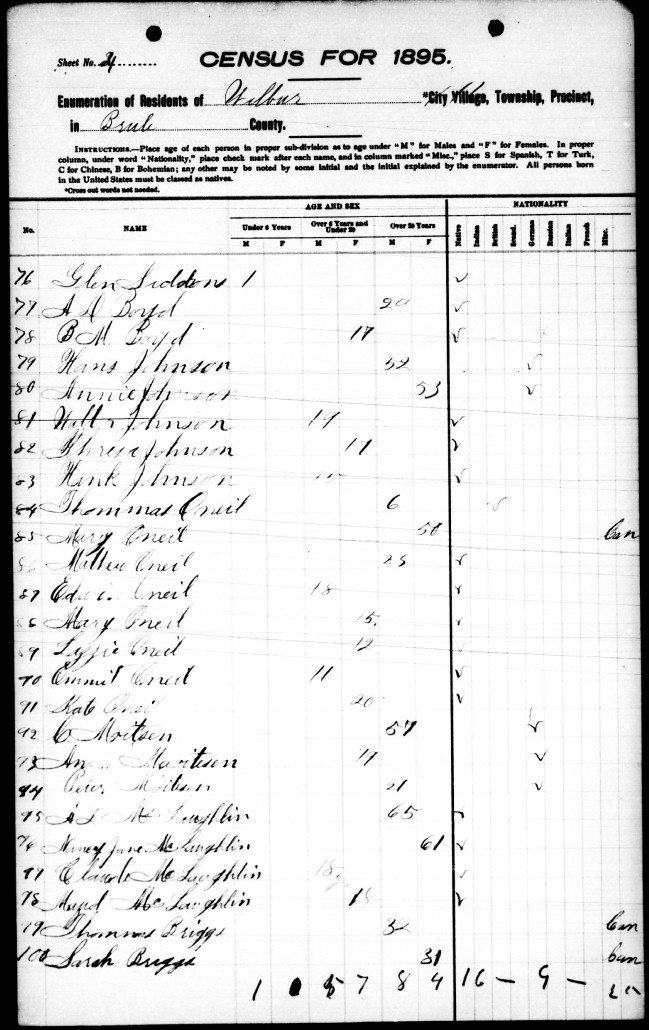 Sheet No. 4
CENSUS FOR 1895.
Enumeration of Residents of Wilbur *City Village, Township, Precinct,
in Brule County.
INSTRUCTIONS.—Place age of each person in proper sub-division as to age under "M" for Males and "F" for Females. In proper
column, under word "Nationality," place check mark after each name, and in column marked "Misc.," place S for Spanish, T for Turk,
C for Chinese, B for Bohemian; any other may be noted by some initial and the initial explained by the enumerator. All persons born
in the United States must be classed as natives.
*Cross out words not needed.
AGE AND SEX NATIONALITY
No. NAME Under 6 Years Over 6 Years and Under 20 Over 20 Years Native Indian British Scand. German Russian Italian French Misc.
M F M F M F
76 Glen Siddons 1 ✓
77 A D Boyd 29 ✓
78 B M Boyd 17 ✓
79 Hans Johnson 52 ✓
80 Annie Johnson 53 ✓
81 Walter Johnson 19 ✓
82 Johnson 17 ✓
83 Hank Johnson ✓
84 Thommas Oneil 6 ✓
85 Mary Oneil 50 Can
86 Mathew Oneil 23 ✓
87 Oneil 18 ✓
88 Mary Oneil 15 ✓
89 Lizzie Oneil 12 ✓
90 Emmit Oneil 11 ✓
91 Kate Oneil 20 ✓
92 C Moitsen 57 ✓
93 Anna 17 ✓
94 Peter Moitsen 21 ✓
95 A S McLaughlin 65 ✓
96 Nancy Jane McLaughlin 61 ✓
97 Claude McLaughlin 18 ✓
98 Maud McLaughlin 18 ✓
99 Thommas Briggs 32 Can
100 Sarah Briggs 31 Can
1 0 5 7 8 4 16 — 9 —